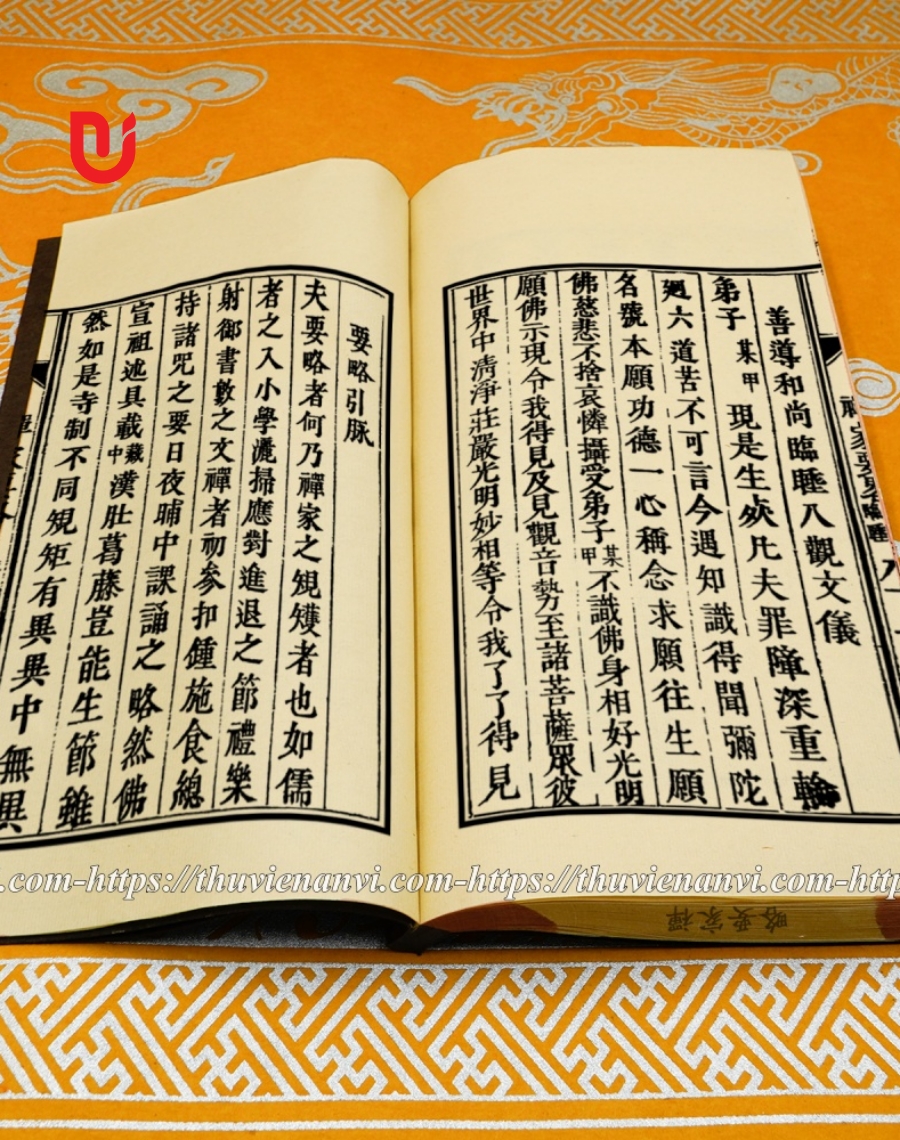 禪家要畧臨睡
善導和尚臨睡入觀文儀
弟子某甲現是生死凡夫罪障深重輪
廻六道苦不可言今遇知識得聞彌陀
名號本願功德一心稱念求願往生願
佛慈悲不捨哀憐攝受弟子某甲不識佛身相好光明
願佛示現令我得見及見觀音勢至諸菩薩眾彼
世界中清淨莊嚴光明妙相等令我了了得見
要略引脈
夫要略者何乃禪家之䂓矱者也如儒
者之入小學灑掃應對進退之節禮樂
射御書數之文禪者初參扣鍾施食總
持諸咒之要日夜晡中課誦之略然佛
宣祖述具載藏中漢肚葛藤豈能生節雖
然如是寺制不同䂓矩有異異中無異
.com-https://thuvienanvi.com-https://thuvienanvi.com-http
禪家要略